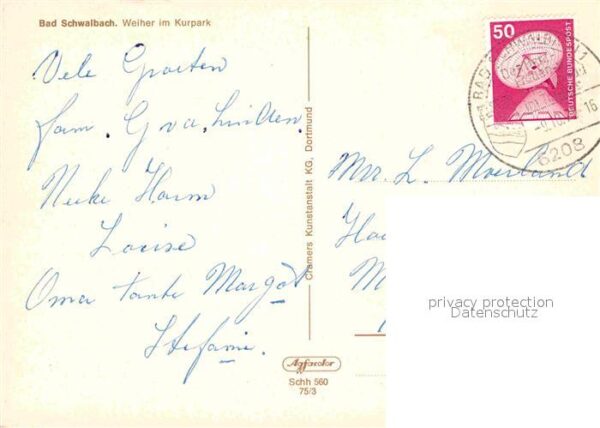 Bad Schwalbach. Weiher im Kurpark
Vele Groeten
fam. G v.d. Linden.
Harm
Louise
Oma tante Margot
Stefanie.
Cramers Kunstanstalt KG, Dortmund
Agfacolor
Schh 560
75/3
50
DEUTSCHE BUNDESPOST
BAD SCHWALBACH
16
6208
Mr. L.
privacy protection
Datenschutz